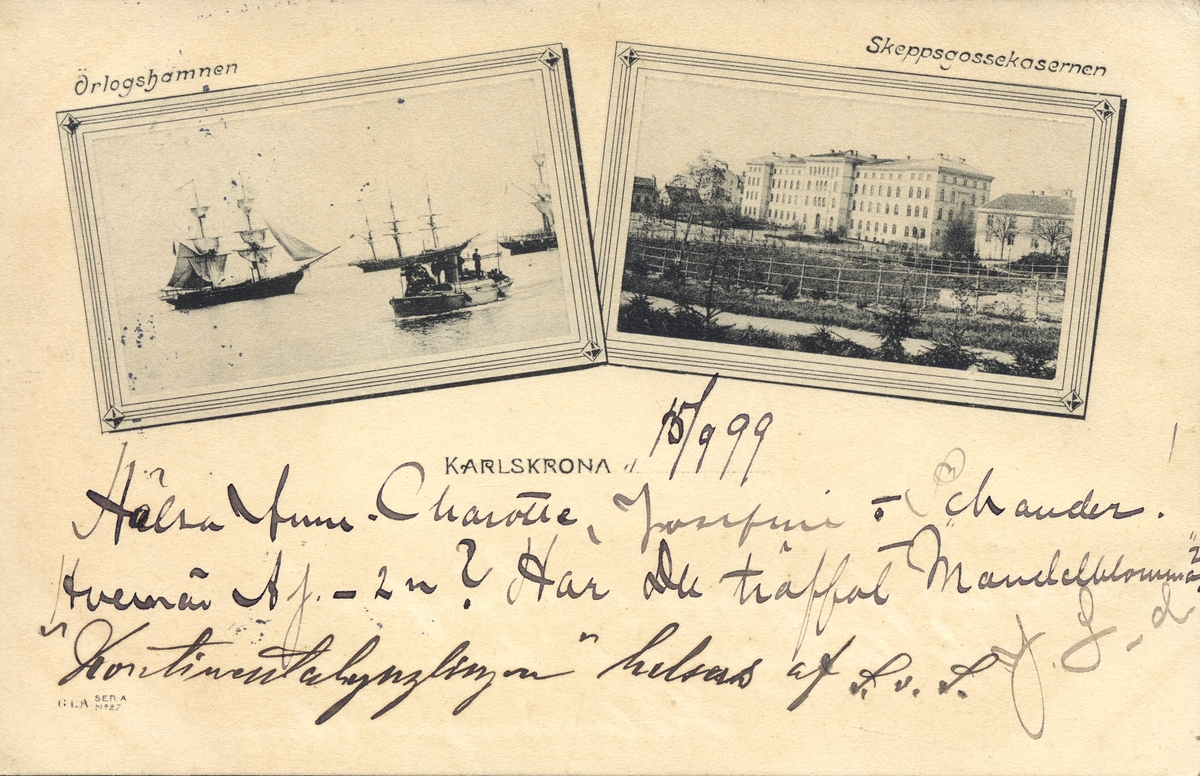 Örlogshamnen
Skeppsgossekasernen
KARLSKRONA d. 15/9 99
Hälsa Ann-Charotte, Josefine o Schander.
Hvem är A f. - 2 n? Har Du träffat Mandelblomma?
"Kontinentalynglingen" helsas af S. v. S. J. G-d
G.L.A SER.A
Nº 27